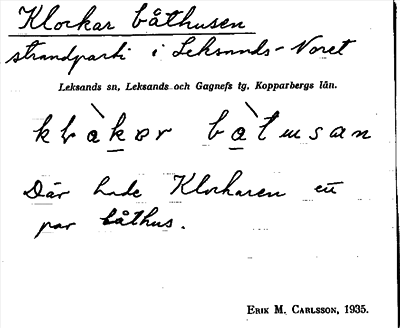 Klockar båthusen
strandparti i Leksands-Noret
Leksands sn, Leksands och Gagnefs tg, Kopparbergs län.
Där hade Klockaren ett
par båthus.
ERIK M. CARLSSON, 1935.